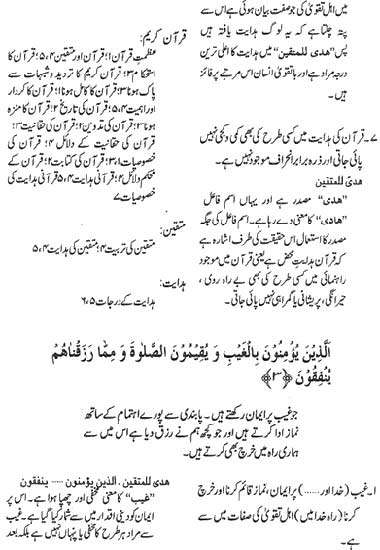 میں اہل تقویٰ کی جو صفت بیان ہوئی ہے اس سے
پتہ چلتا ہے کہ یہ لوگ ہدایت یافتہ ہیں
پس "هدىً للمتقين" میں ہدایت کا اعلیٰ ترین
درجہ مراد ہے اور باتقویٰ انسان اس مرتبے پر فائز
ہیں۔
۷۔ قرآن کی ہدایت میں کسی طرح کی بھی کمی و کجی نہیں
پائی جاتی اور ذرہ برابر انحراف موجود نہیں ہے۔
هدىً للمتقين
"هدى" مصدر ہے اور یہاں اسم فاعل
"هاد" کا معنی دے رہا ہے۔ اسم فاعل کی جگہ
مصدر کا استعمال اس حقیقت کی طرف اشارہ ہے
کہ قرآن ہدایت محض ہے یعنی قرآن میں موجود
راہنمائی میں کسی طرح کی بھی بے راہ روی،
حیرانگی، پریشانی یا گمراہی نہیں پائی جاتی۔
قرآن کریم:
عظمتِ قرآن ۱؛ قرآن اور متقین ۴،۵؛ قرآن کا
استحکام ۳؛ قرآن کریم کا تردید و شبہات سے
پاک ہونا ۳؛ قرآن کا کامل ہونا ۱؛ قرآن کا کردار
اور اہمیت ۴،۵؛ قرآن کی تاریخ ۲؛ قرآن کا منزہ
ہونا ۳؛ قرآن کی تدوین ۲؛ قرآن کی حقانیت ۳؛
قرآن کی حقانیت کے دلائل ۴؛ قرآن کی
خصوصیات ۱،۳؛ قرآن کی کتابت ۲؛ قرآن کے
محکم دلائل ۲؛ قرآنی ہدایت ۴،۵؛ قرآنی ہدایت کی
خصوصیات ۷
متقین:
متقین کی تربیت ۴؛ متقین کی ہدایت ۴،۵
ہدایت:
ہدایت کے درجات ۶،۵
الَّذِينَ يُؤْمِنُونَ بِالْغَيْبِ وَ يُقِيمُونَ الصَّلٰوةَ وَ مِمَّا رَزَقْنَاهُمْ
يُنْفِقُونَ ﴿۳﴾
جو غیب پر ایمان رکھتے ہیں۔ پابندی سے پورے اہتمام کے ساتھ
نماز ادا کرتے ہیں اور جو کچھ ہم نے رزق دیا ہے اس میں سے
ہماری راہ میں خرچ بھی کرتے ہیں۔
۱۔ غیب (خدا اور ......) پر ایمان، نماز قائم کرنا اور خرچ
کرنا (راہ خدا میں) اہل تقویٰ کی صفات میں سے
ہے۔
هدىً للمتقين۔ الذين يؤمنون ...... ينفقون
"غیب" کا معنی مخفی اور چھپا ہوا ہے۔ اس پر
ایمان کو دینی اقدار میں سے شمار کیا گیا ہے۔ غیب
سے مراد ہر طرح کا مخفی یا پنہاں نہیں ہے بلکہ